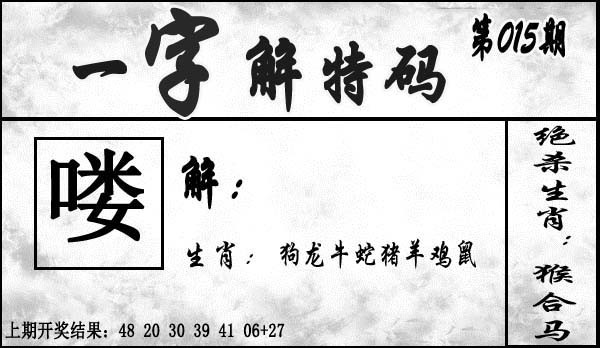 一字解特码
第015期
喽
解：
生肖：狗龙牛蛇猪羊鸡鼠
上期开奖结果：48 20 30 39 41 06+27
绝杀生肖：猴合马